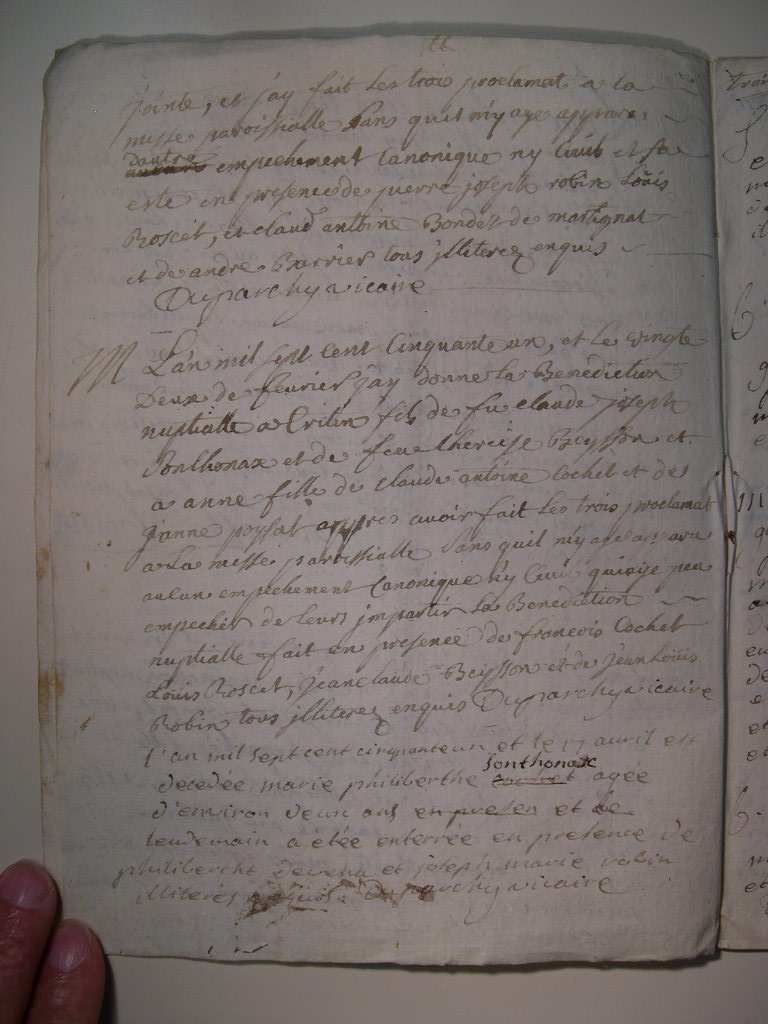 jointe, et j'ay fait les trois proclamat a la
messe paroissialle sans qu'il m'y aye apparu
d'autre empechement canonique ny civil et fa
este en presence de pierre joseph robin Loüis
Roscet, et claud antoine Bondet de martignat
et de andre Barrier tous jlliterez enquis
Duparchy vicaire
M L'an mil sept cent Cinquante un, et le vingte
Deux de fevrier j'ay donne la Benediction
nuptialle a fils de fu claude joseph
Sonthonax et de feu thereise Beysson et
a anne fille de claude antoine Cochet et de
janne poysat appres avoir fait les trois proclamat
a La messe paroissialle Sans quil m'y aye apparu
aucun empechement Canonique n'y Civil qui aije peu
empecher de leurs jmpartir La Benediction
nuptialle fait en presence de francois Cochet
Louis Roscet, jean claude Beysson et de jean Loüis
Robin tous jlliterez enquis Duparchy vicaire
l'an mil sept cent cinquante un et le 17 avril est
decedée marie philiberthe Sonthonax agée
d'environ deux ans en presen et le
lendemain a étée enterrée en presence de
philibercht et joseph marie robin
illiterés enquis Duparchy vicaire